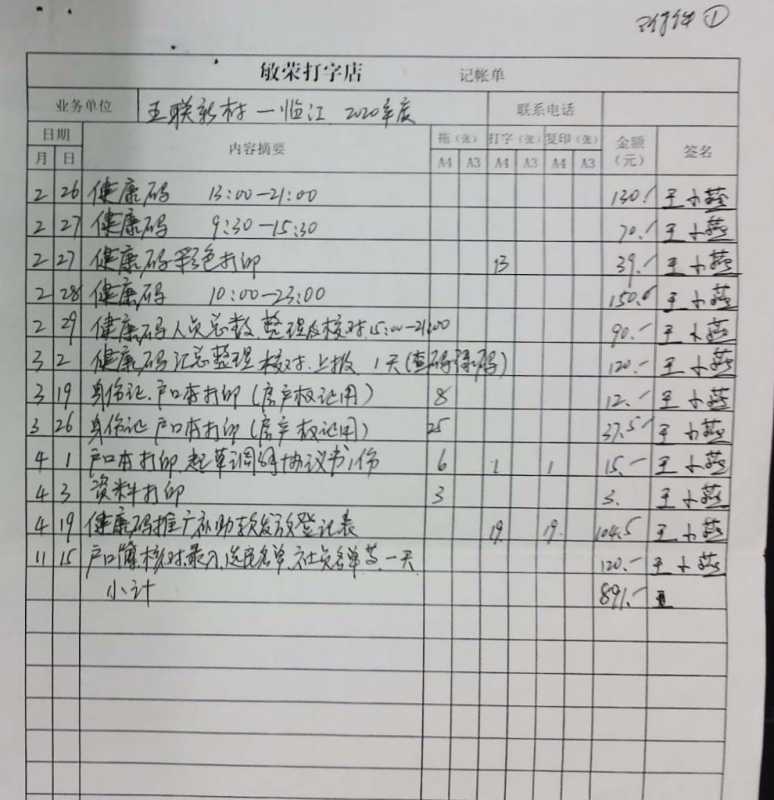 附件①
敏荣打字店 记帐单
业务单位 五联新村一临江 2020年度 联系电话
日期 内容摘要 拖（张） 打字（张） 复印（张） 金额（元） 签名
月 日 A4 A3 A4 A3 A4 A3
2 26 健康码 13:00-21:00 130.- 王小燕
2 27 健康码 9:30-15:30 70.- 王小燕
2 27 健康码彩色打印 13 39.- 王小燕
2 28 健康码 10:00-23:00 150.- 王小燕
2 29 健康码人员总数整理及核对.15:00-21:00 90.- 王小燕
3 2 健康码汇总整理.核对.上报 1天(查码绿码) 120.- 王小燕
3 19 身份证.户口本打印(房产权证用) 8 12.- 王小燕
3 26 身份证 户口本打印(房产权证用) 25 37.5 王小燕
4 1 户口本打印.起草调解协议书1份 6 1 1 15.- 王小燕
4 3 资料打印 3 3. 王小燕
4 19 健康码推广补助款发放登记表 19. 19. 104.5 王小燕
11 15 户口簿核对.录入.选民名单.社员名单等.一天 120.- 王小燕
小计 891.- 王